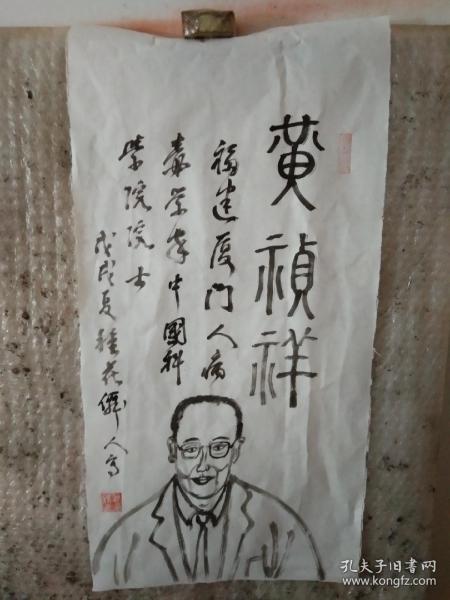 黄祯祥
福建厦门人病
毒学家中國科
学院院士
戊戌夏種花僊人写
孔夫子旧书网
www.kongfz.com